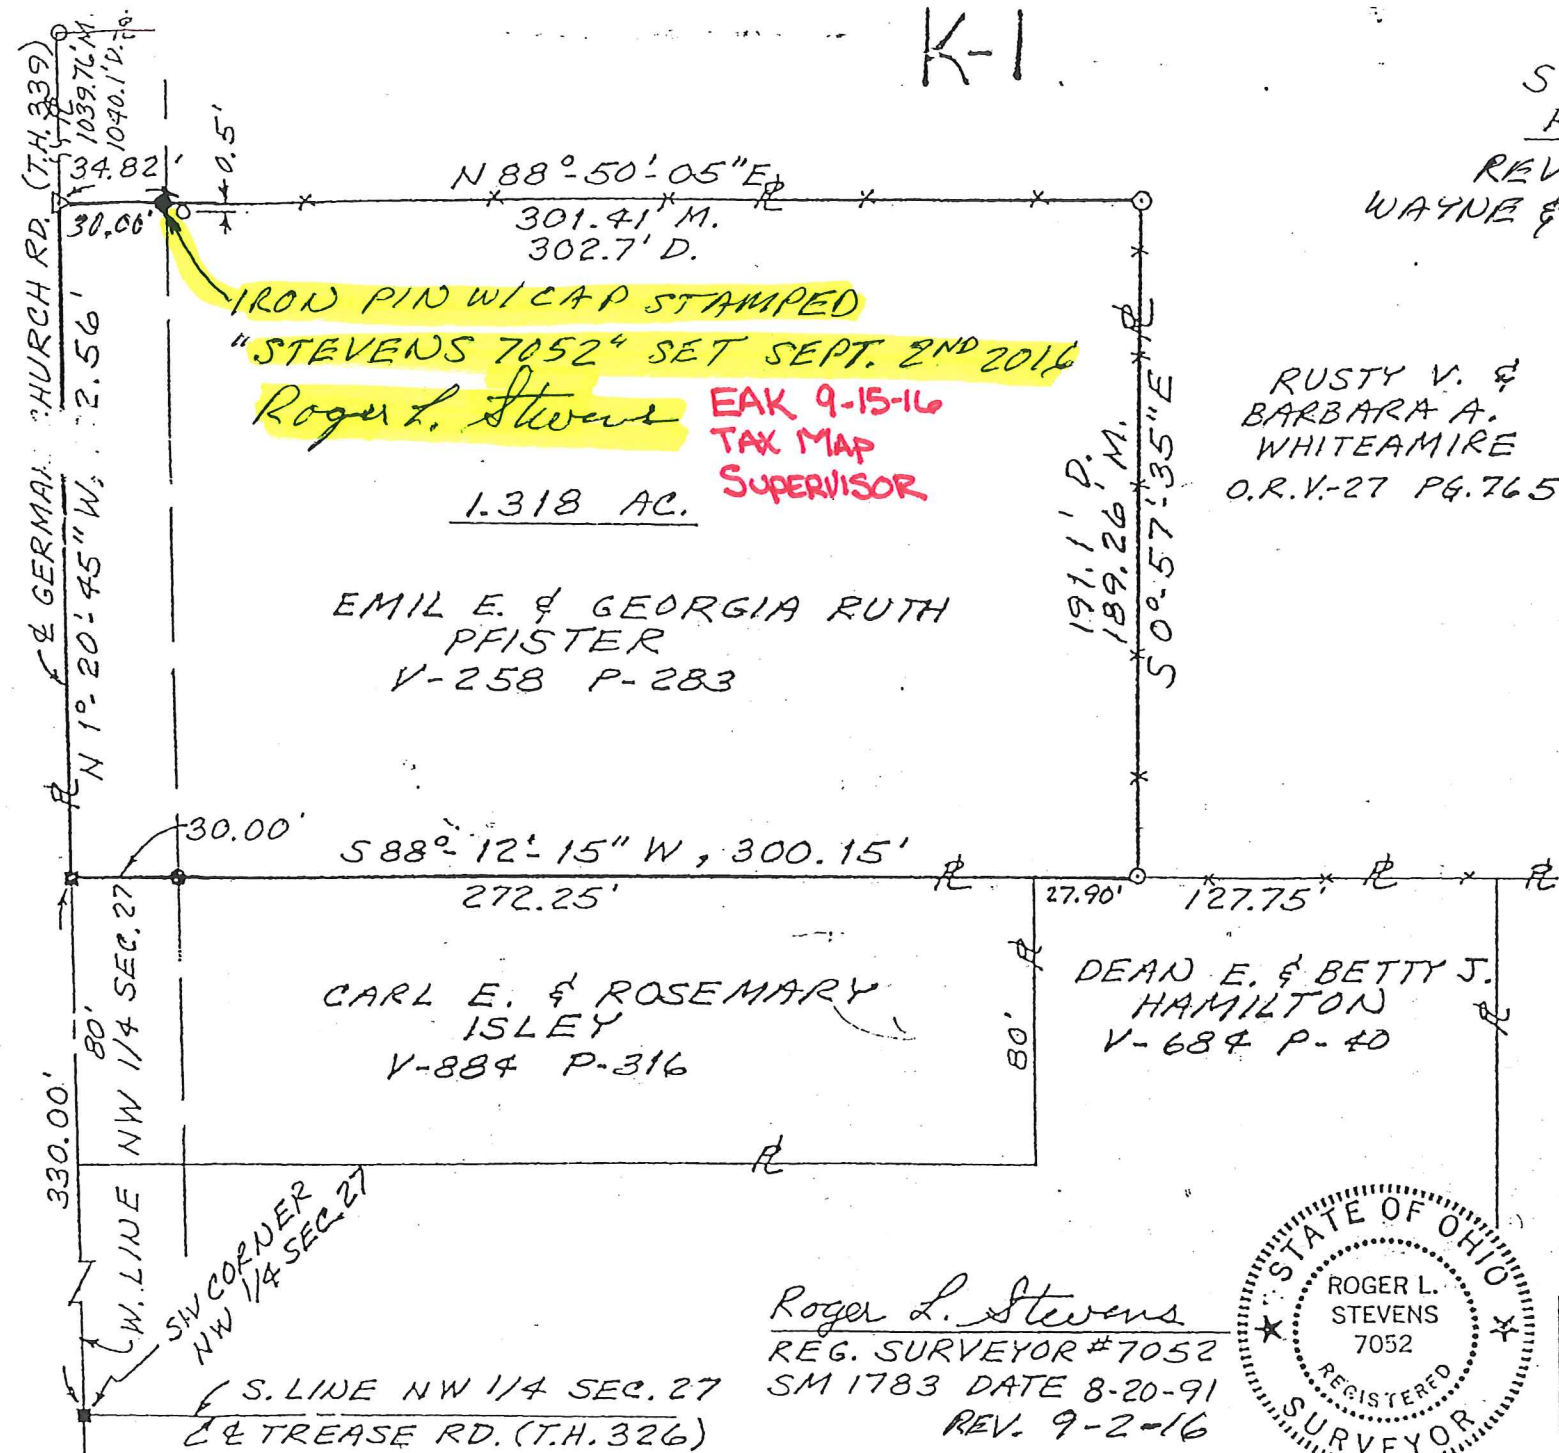 K-1
1039.76' M.
1040.1' D.
(T.H. 339)
34.82'
30.00'
0.5'
N 88°-50'-05" E
301.41' M.
302.7' D.
REV
WAYNE &
IRON PIN W/CAP STAMPED
"STEVENS 7052" SET SEPT. 2ND 2016
Roger L. Stevens
EAK 9-15-16
TAX MAP
SUPERVISOR
1.318 AC.
EMIL E. & GEORGIA RUTH
PFISTER
V-258 P-283
℄ GERMAN CHURCH RD.
N 1°-20'-45" W, 2.56'
℞
191.1' D.
189.26' M.
S 0°-57'-35" E
RUSTY V. &
BARBARA A.
WHITEAMIRE
O.R.V.-27 PG. 765
30.00'
S 88°-12'-15" W, 300.15'
272.25'
27.90'
127.75'
CARL E. & ROSEMARY
ISLEY
V-884 P-316
80'
DEAN E. & BETTY J.
HAMILTON
V-684 P-40
80'
330.00'
W. LINE NW 1/4 SEC. 27
SW CORNER
NW 1/4 SEC. 27
S. LINE NW 1/4 SEC. 27
& ℄ TREASE RD. (T.H. 326)
Roger L. Stevens
REG. SURVEYOR #7052
SM 1783 DATE 8-20-91
REV. 9-2-16
STATE OF OHIO
ROGER L.
STEVENS
7052
REGISTERED
SURVEYOR